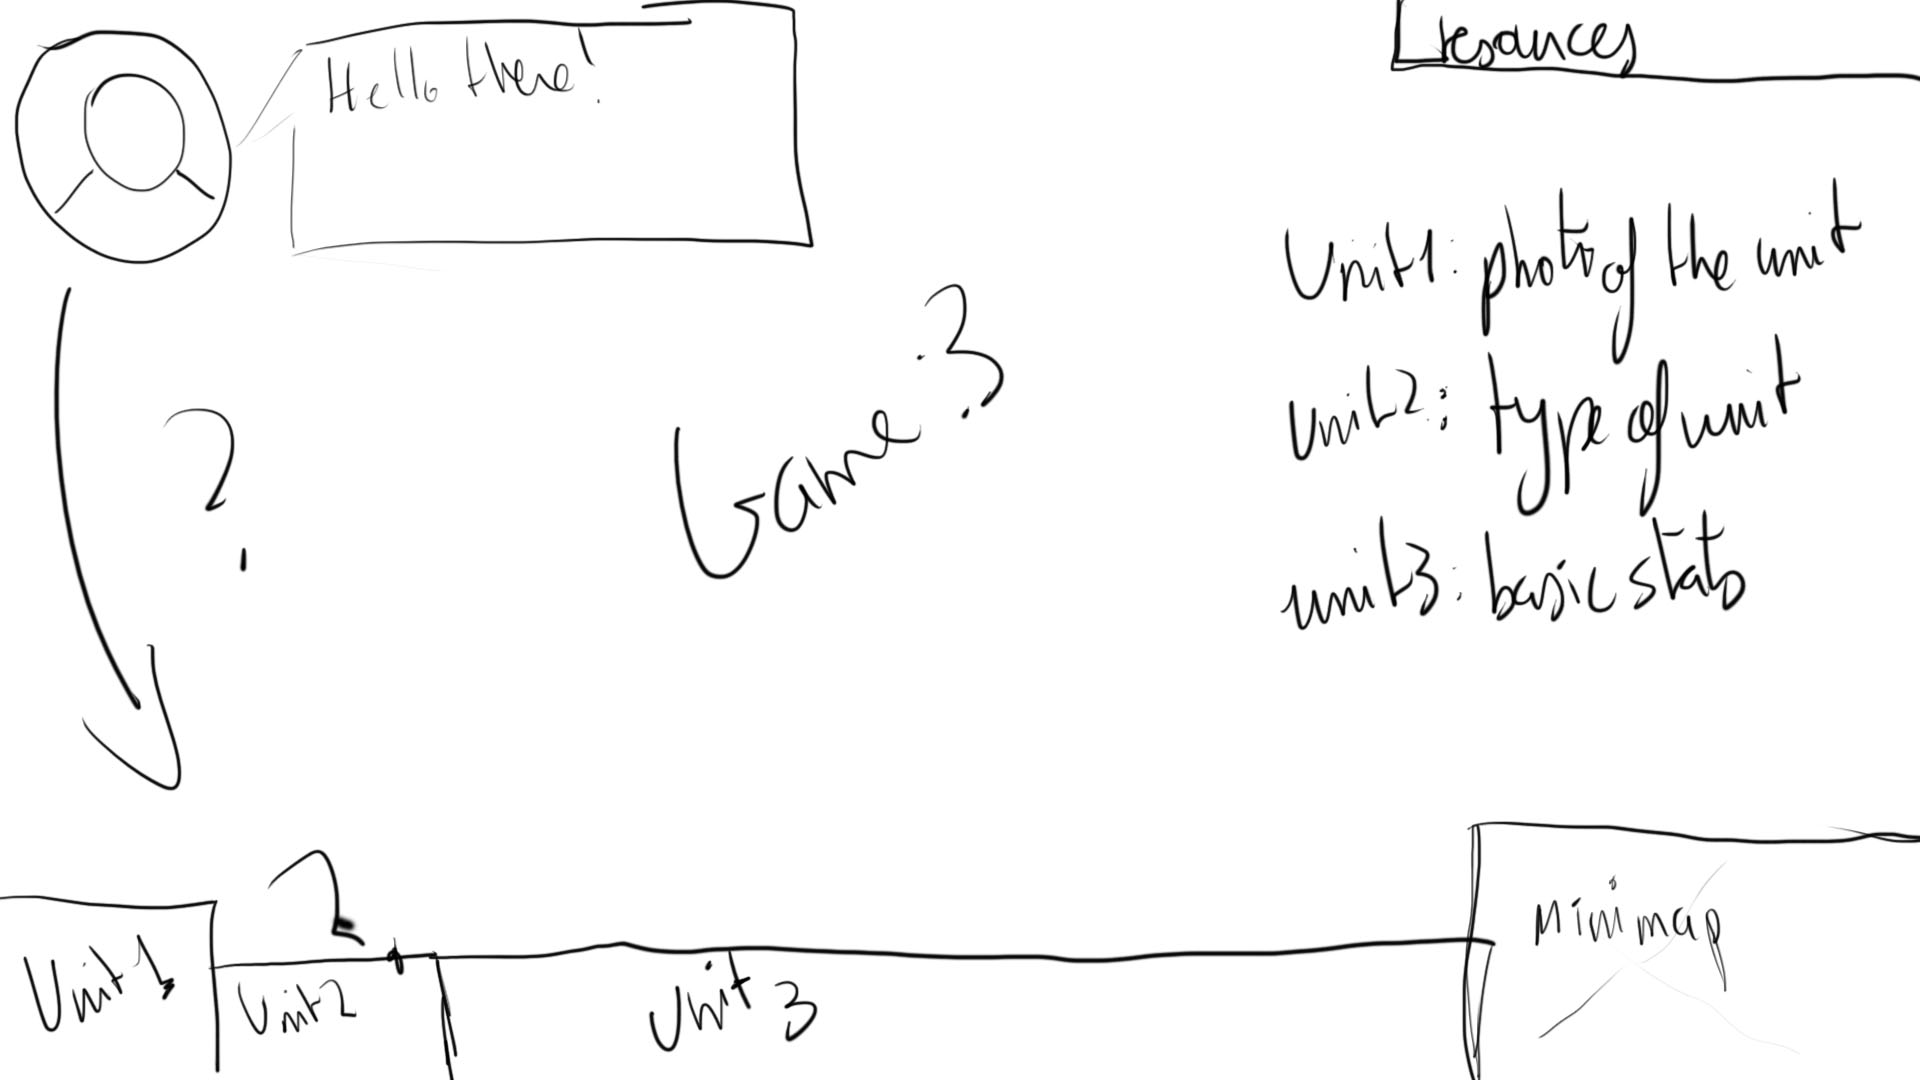 Hello there!
resources
Unit1: photo of the unit
unit2: type of unit
unit3: basic stats
?
Game :3
?
Unit 1
Unit2
Unit 3
Minimap